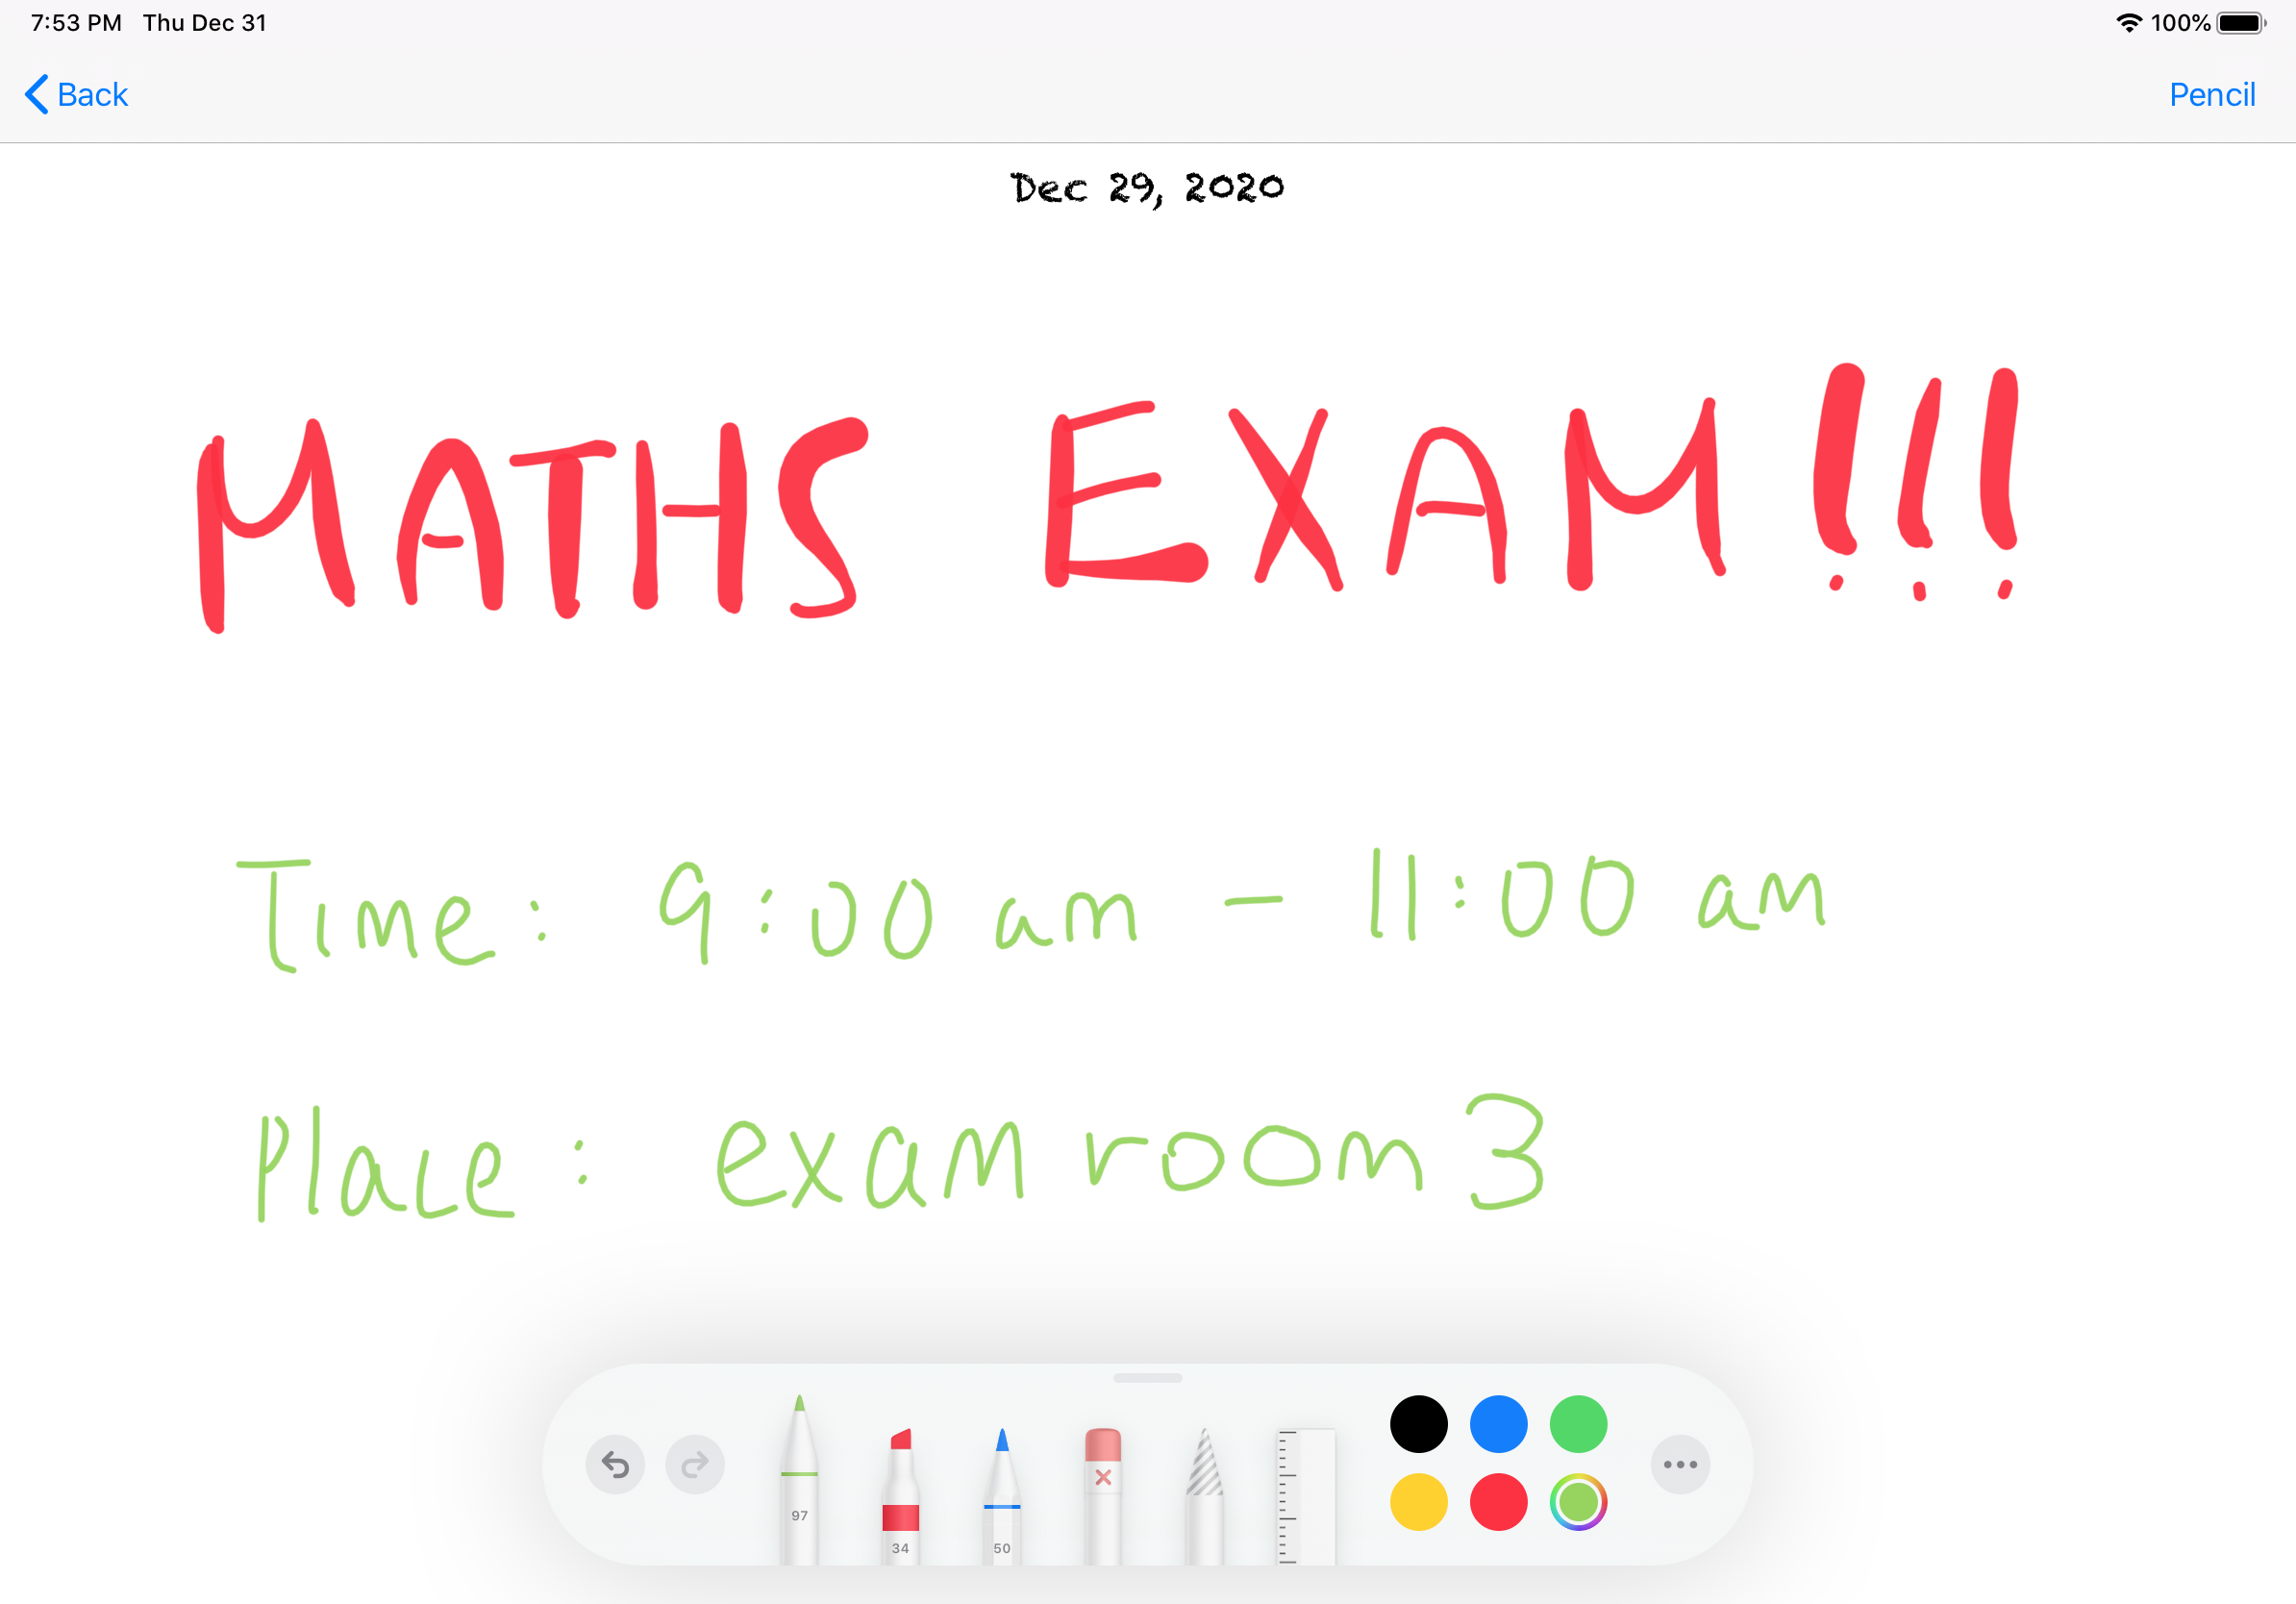 7:53 PM Thu Dec 31 100%
Back Pencil
Dec 29, 2020
MATHS EXAM!!!
Time: 9:00 am - 11:00 am
Place: exam room 3
97 34 50